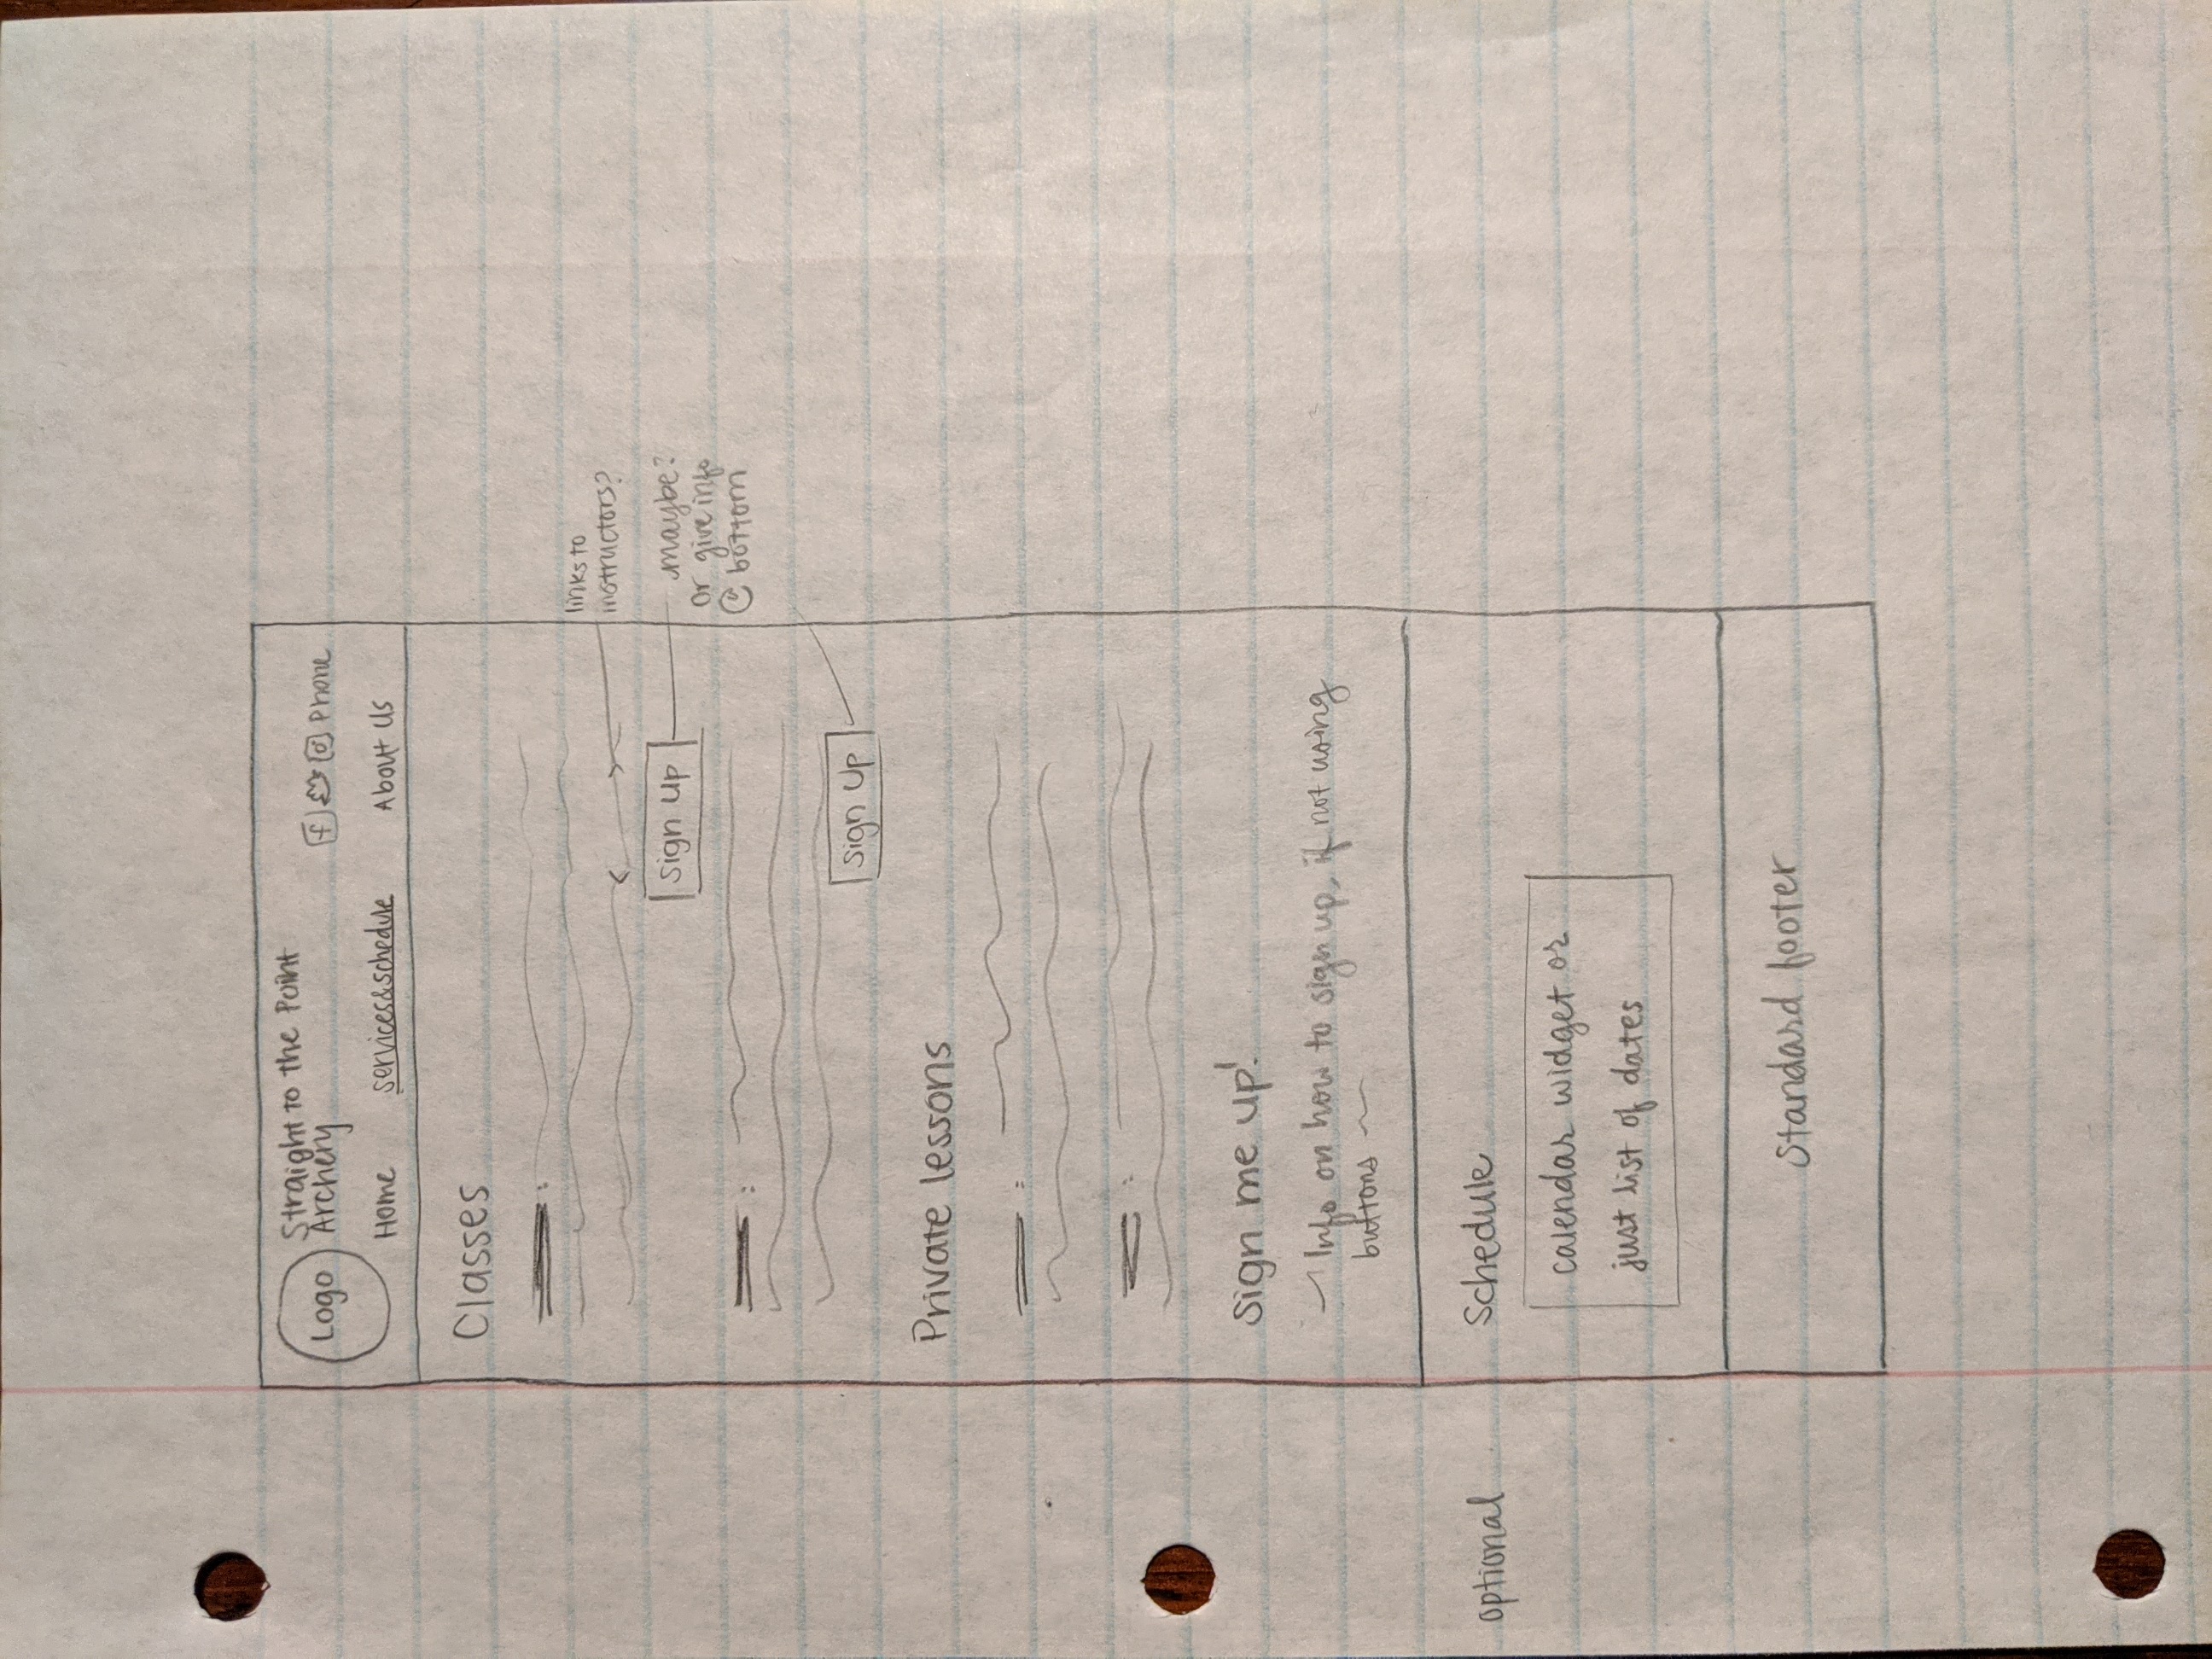 Logo
Straight to the Point
Archery
f
Phone
Home
services&schedule
About Us
Classes
:
links to
instructors?
sign up
maybe?
or give info
@ bottom
:
sign up
Private lessons
:
:
sign me up!
~ Info on how to sign up, if not using
buttons ~
optional
Schedule
calendar widget or
just list of dates
Standard footer